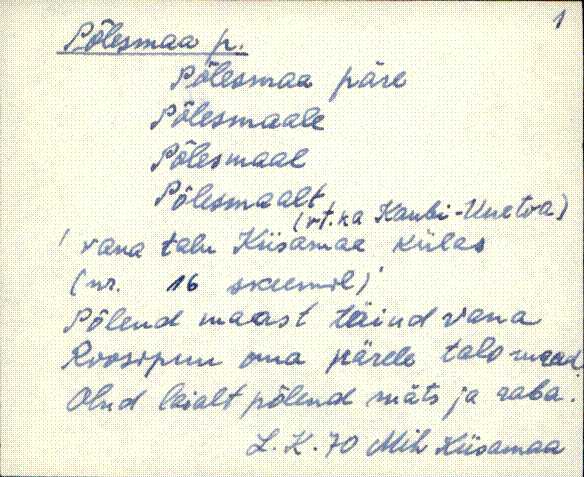 1
Põlesmaa p.
Põlesmaa päre
Põlesmaale
Põlesmaal
Põlesmaalt
(vt. ka Kaubi-Unetva)
' vana talu Kiisamaa külas
(nr. 16 skeemil)'
Põlend maast täind vana
Roosipuu oma pärele talo maad.
Olnd laialt põlend mäts ja raba.
L. K. 70 Mih Kiisamaa